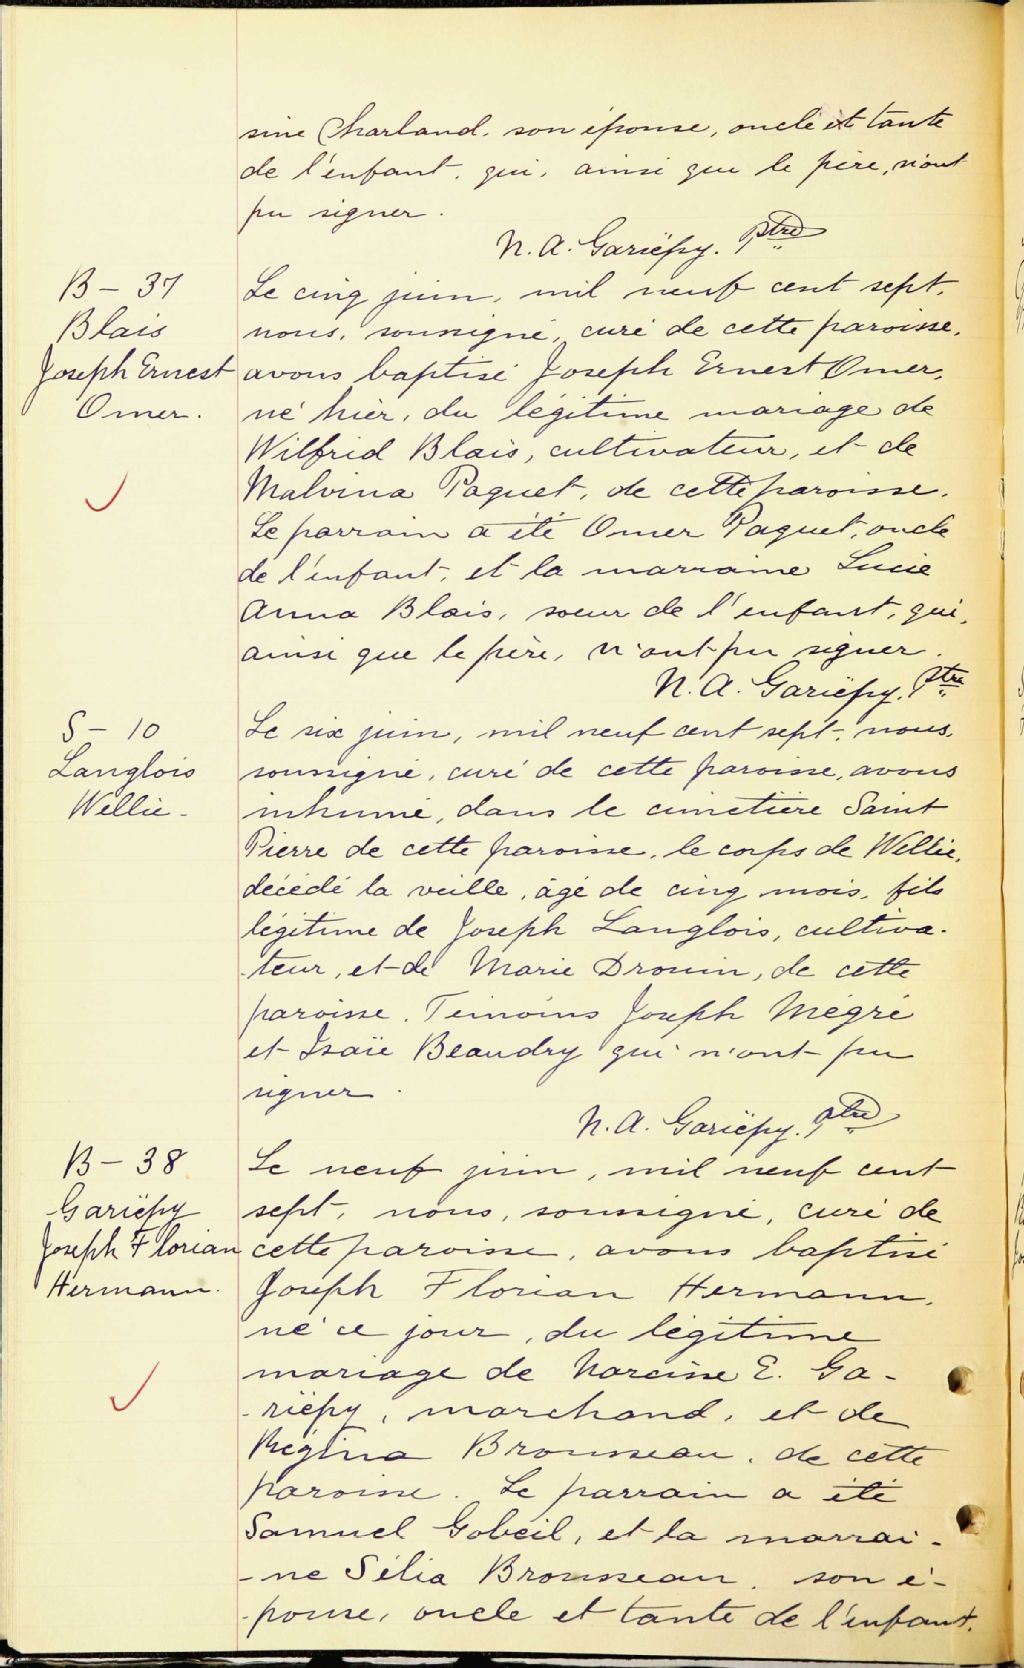 sine Charland, son épouse, oncle et tante
de l'enfant, qui, ainsi que le père, n'ont
pu signer.
N. A. Gariëpy. Ptre
B - 37
Blais
Joseph Ernest
Omer.
Le cinq juin, mil neuf cent sept,
nous, soussigné, curé de cette paroisse,
avons baptisé Joseph Ernest Omer,
né hier, du légitime mariage de
Wilfrid Blais, cultivateur, et de
Malvina Paquet, de cette paroisse.
Le parrain a été Omer Paquet, oncle
de l'enfant, et la marraine Lucie
Anna Blais, soeur de l'enfant, qui,
ainsi que le père, n'ont pu signer.
N. A. Gariëpy. Ptre
S - 10
Langlois
Wellie -
Le six juin, mil neuf cent sept, nous,
soussigné, curé de cette paroisse, avons
inhumé, dans le cimetière Saint
Pierre de cette paroisse, le corps de Wellie,
décédé la veille, âgé de cinq mois, fils
légitime de Joseph Langlois, cultiva-
-teur, et de Marie Drouin, de cette
paroisse. Témoins Joseph Mégré
et Isaïe Beaudry qui n'ont pu
signer.
N. A. Gariëpy. Ptre
B - 38
Gariëpy
Joseph Florian
Hermann.
Le neuf juin, mil neuf cent
sept, nous, soussigné, curé de
cette paroisse, avons baptisé
Joseph Florian Hermann,
né ce jour, du légitime
mariage de Narcisse E. Ga-
-riëpy, marchand, et de
Régina Brousseau, de cette
paroisse. Le parrain a été
Samuel Gobeil, et la marrai-
-ne Sélia Brousseau, son é-
-pouse, oncle et tante de l'enfant,